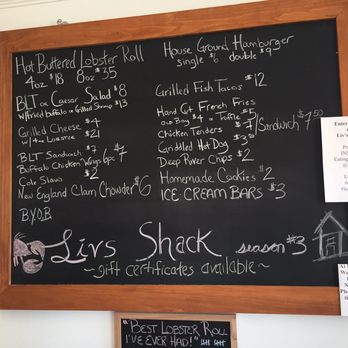 Hot Buttered Lobster Roll
4oz $18 8oz $35
BLT or Caesar Salad $8
w/Fried buffalo or Grilled Shrimp $13
Grilled Cheese $4
w/4oz Lobster $21
BLT Sandwich $7
Buffalo Chicken Wings 6pc $7
Cole Slaw $2
New England Clam Chowder $6
B.Y.O.B
House Ground Hamburger
single $6 double $9
Grilled Fish Tacos $12
Hand Cut French Fries
Old Bay $4 Truffle $5
Chicken Tenders $7 / Sandwich $7.50
Griddled Hot Dog $3
Deep River Chips $2
Homemade Cookies $2
ICE CREAM BARS $3
Livs Shack season #3
~gift certificates available~
"BEST LOBSTER ROLL
I'VE EVER HAD!"
Enter
Liv's